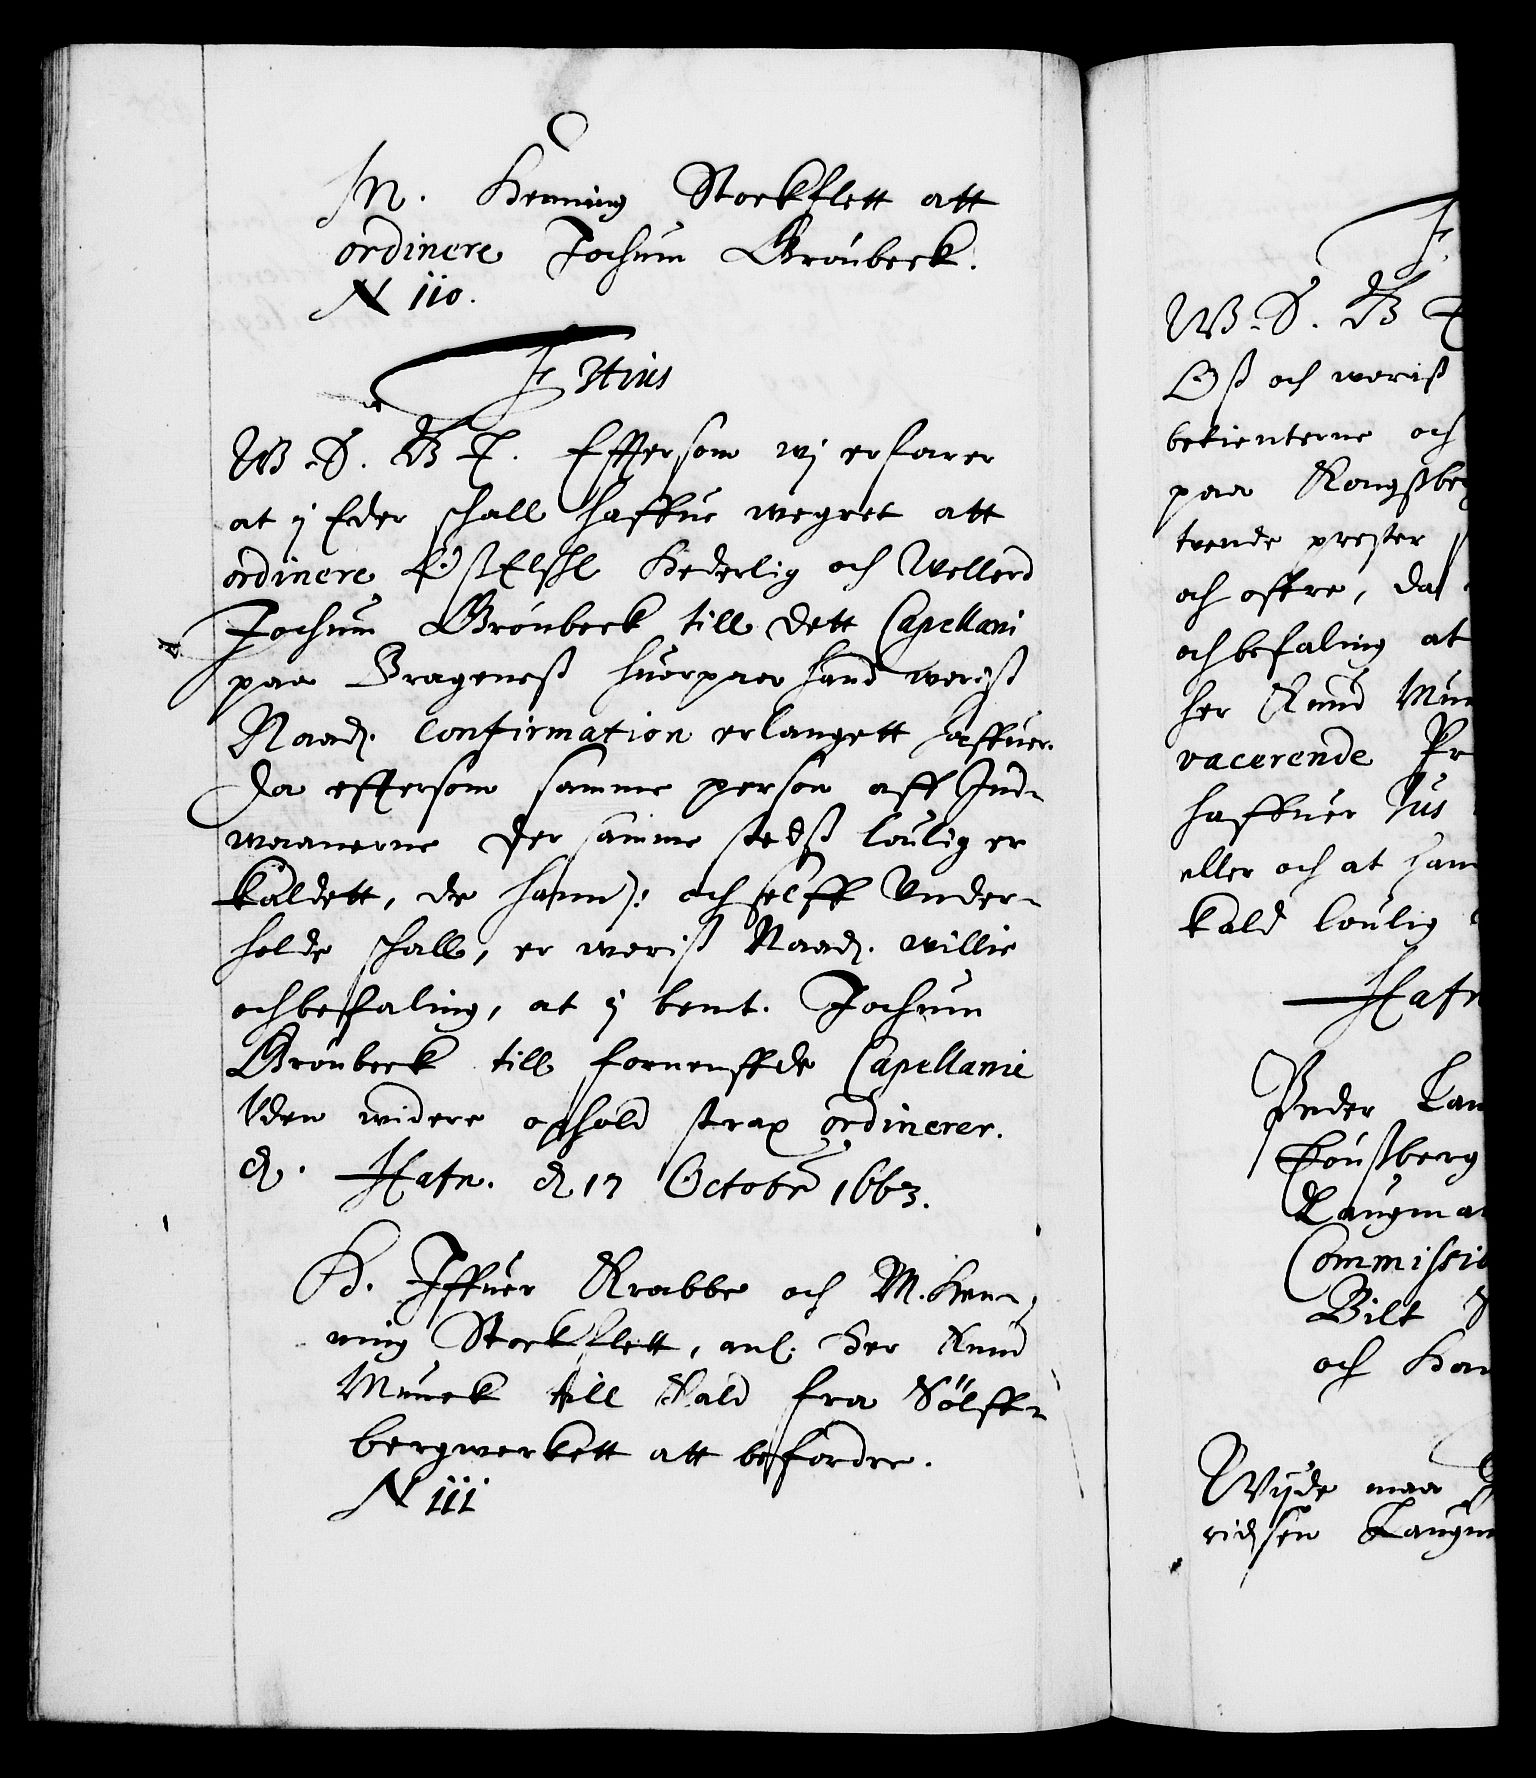 M. Henning Stockflett att
ordinere Jochum Grønbeck.
N 110.
F 3tius
W. S. G T. Efftersom wj erfarer
at i Eder schall haffue wegret att
ordinere Oß Elschl Hederlig och Wellerd
Jochum Grønbeck till dett Capellani
paa Brageneß huorpaa hand woriß
Naadh. Confirmation erlangett haffuer.
da effersom samme person aff Ind-
waanerne der samme stedß loulig er
kaldett, de hannem och selff Under-
holde schall, er woriß Naadh. willie
och befaling, at i bemt. Jochum
Grønbeck till fornenffde Capellanie
Uden widere ophold strax ordinerer.
Hafn. d 17 Octobr 1663.
H. Iffuer Krabbe och M. Hen-
ning Stockflett, anl. Her Knud
Munck till Kald fra Sölff-
bergwerkett att befordre.
N 111
F
W. S. G T
Oß och woriß
betienterne och
paa Kongßbe
tvende prester
och offre, da
och befaling at
her Knud Mun
vacerende Pr
haffuer Jus
eller och at han
kald loulig
Hafn
Peder Lau
Tønßberg
Laugma
Commissio
Bilt
och Han
Wijde maa
richsen Laugm